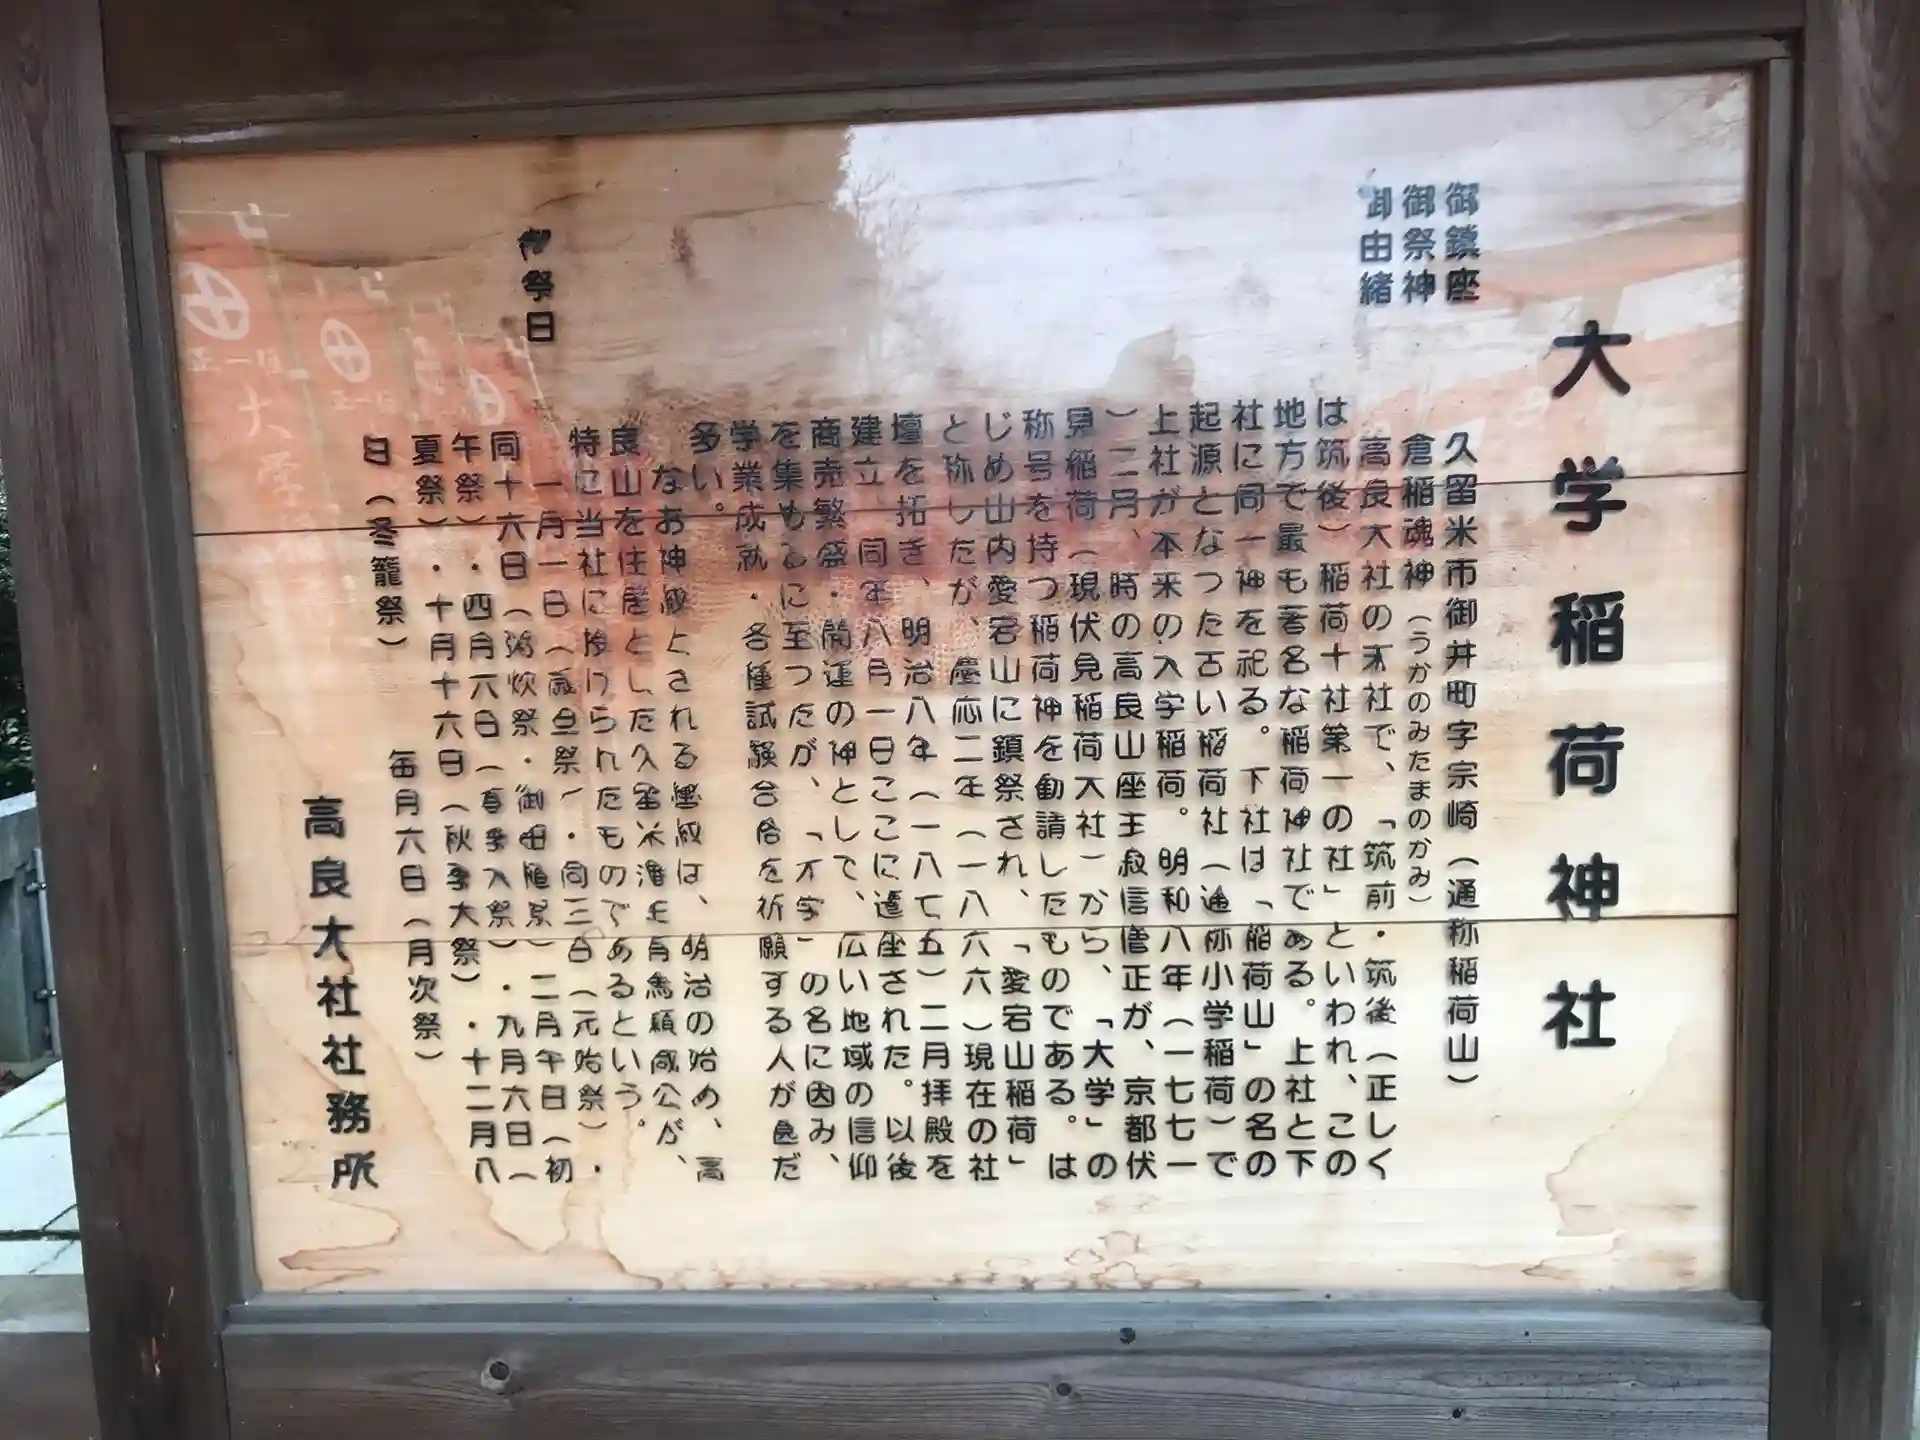 大学稲荷神社
御鎮座
久留米市御井町字宗崎（通称稲荷山）
御祭神
倉稲魂神（うかのみたまのかみ）
御由緒
高良大社の末社で、「筑前・筑後（正しく
は筑後）稲荷十社第一の社」といわれ、この
地方で最も著名な稲荷神社である。上社と下
社に同一神を祀る。下社は「稲荷山」の名の
起源となつた古い稲荷社（通称小学稲荷）で
上社が本来の入学稲荷。明和八年（一七七一
）二月、時の高良山座主寂信僧正が、京都伏
見稲荷（現伏見稲荷大社）から、「大学」の
称号を持つ稲荷神を勧請したものである。は
じめ山内愛宕山に鎮祭され、「愛宕山稲荷」
と称したが、慶応二年（一八六六）現在の社
壇を拓き、明治八年（一八七五）二月拝殿を
建立、同年八月一日ここに遷座された。以後
商売繁盛・開運の神として、広い地域の信仰
を集めるに至つたが、「大学」の名に因み、
学業成就・各種試験合格を祈願する人が色だ
多い。
なお神殿とされる霊殿は、明治の始め、高
良山を住居とした久留米藩主有馬頼咸公が、
特に当社に設けられたものであるという。
御祭日
一月一日（歳旦祭）・同三日（元始祭）・
同十六日（粥炊祭・御田植祭）二月午日（初
午祭）・四月六日（春季大祭）・九月六日（
夏祭）・十月十六日（秋季大祭）・十二月八
日（冬籠祭）
毎月六日（月次祭）
高良大社社務所
正一位
大学